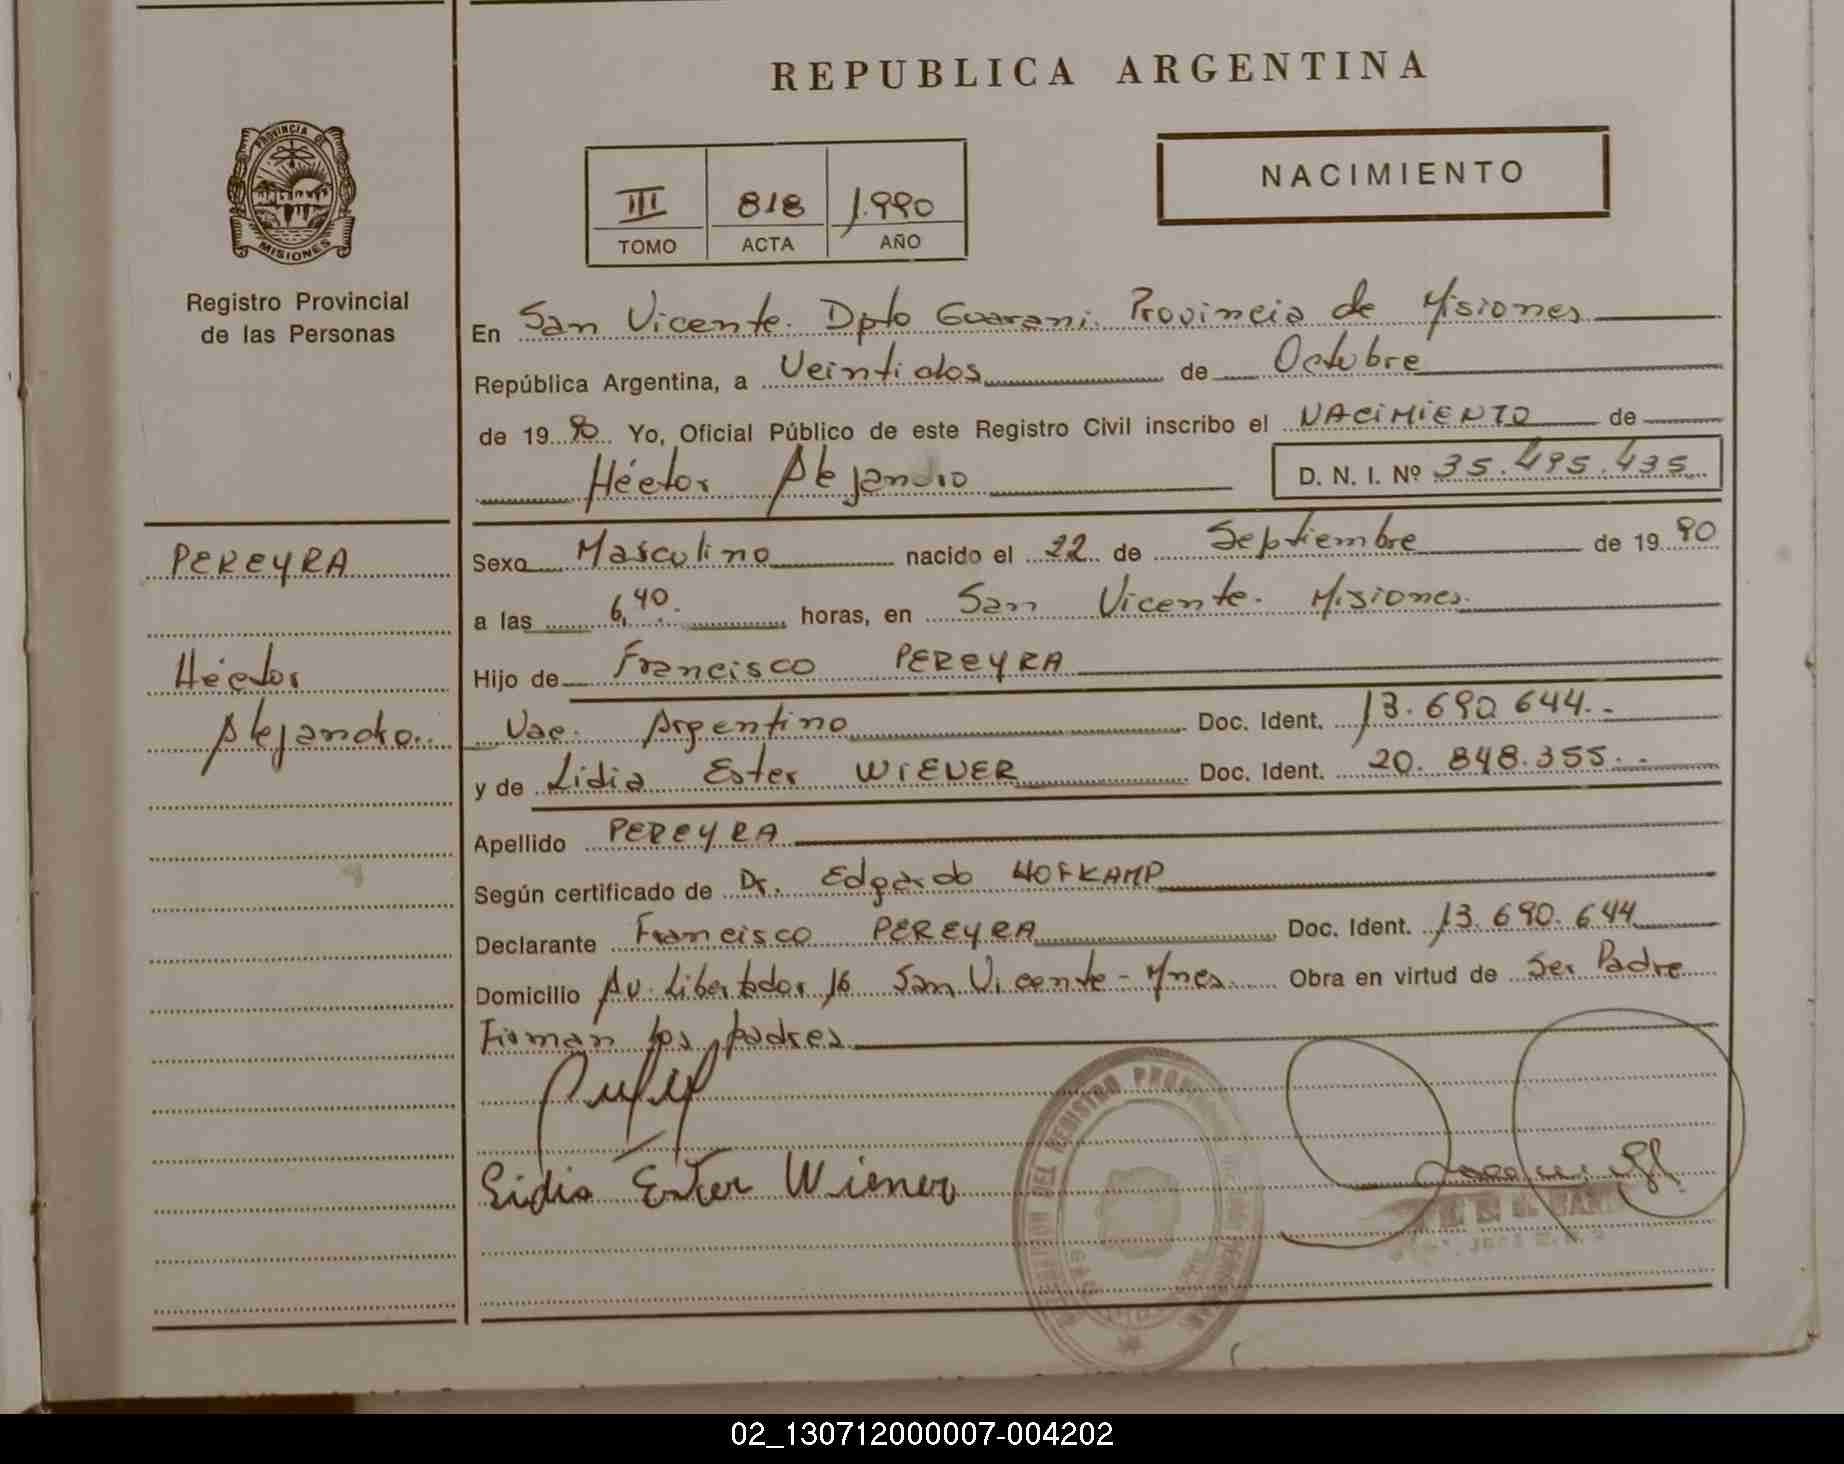 REPUBLICA ARGENTINA
PROVINCIA DE
MISIONES
Registro Provincial
de las Personas
III 818 1.990
TOMO ACTA AÑO
NACIMIENTO
En San Vicente. Dpto Guarani. Provincia de Misiones
República Argentina, a Veintidos de Octubre
de 19 90 Yo, Oficial Público de este Registro Civil inscribo el NACIMIENTO de
Héctor Alejandro D. N. I. Nº 35.495.435
PEREYRA
Héctor
Alejandro
Sexo Masculino nacido el 22 de Septiembre de 19 90
a las 6,40. horas, en San Vicente. Misiones.
Hijo de Francisco PEREYRA
Nac. Argentino Doc. Ident. 13.690.644
y de Lidia Ester WIENER Doc. Ident. 20.848.355
Apellido PEREYRA
Según certificado de Dr. Edgardo HOFKAMP
Declarante Francisco PEREYRA Doc. Ident. 13.690.644
Domicilio Av. Libertador 16 San Vicente - Mnes. Obra en virtud de Ser Padre
Firman los padres
Lidia Ester Wiener
DEL REGISTRO
02_130712000007-004202